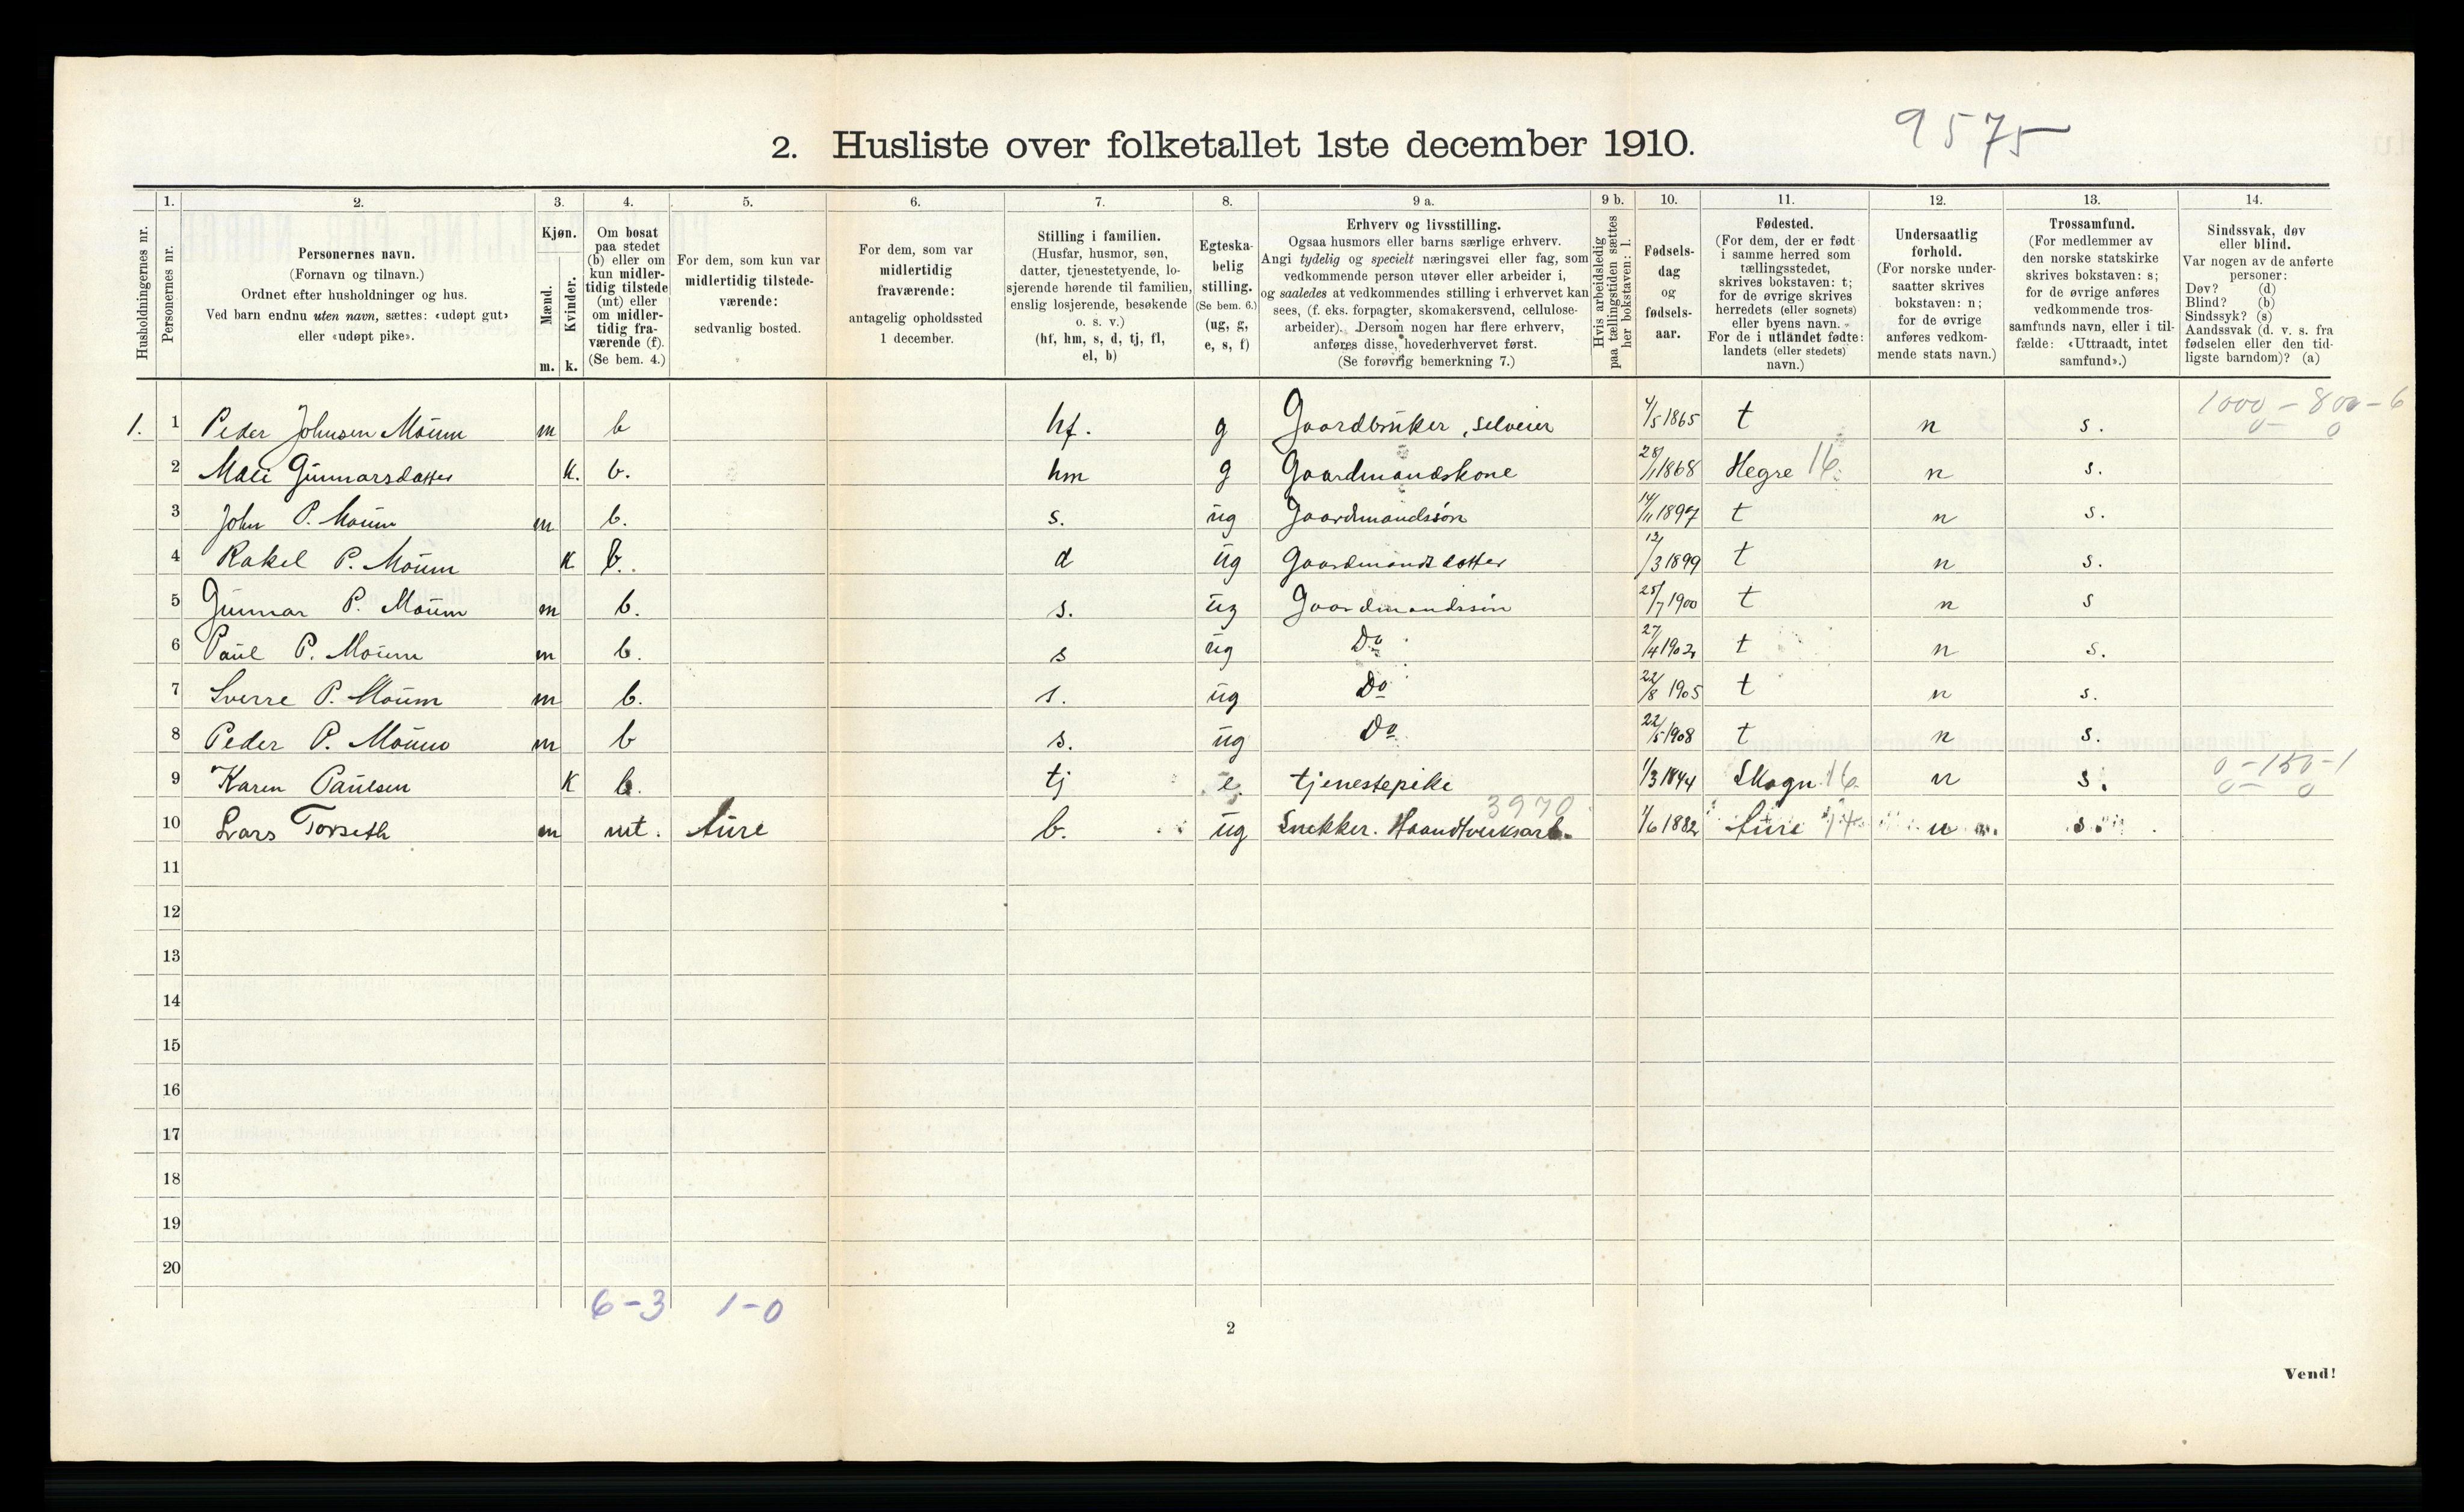 9575
2. Husliste over folketallet 1ste december 1910.
Husholdningernes nr.
1.
Personernes nr.
2.
Personernes navn.
(Fornavn og tilnavn.)
Ordnet efter husholdninger og hus.
Ved barn endnu uten navn, sættes: «udøpt gut»
eller «udøpt pike».
3.
Kjøn.
Mænd.
Kvinder.
m. k.
4.
Om bosat
paa stedet
(b) eller om
kun midler-
tidig tilstede
(mt) eller
om midler-
tidig fra-
værende (f).
(Se bem. 4.)
5.
For dem, som kun var
midlertidig tilstede-
værende:
sedvanlig bosted.
6.
For dem, som var
midlertidig
fraværende:
antagelig opholdssted
1 december.
7.
Stilling i familien.
(Husfar, husmor, søn,
datter, tjenestetyende, lo-
sjerende hørende til familien,
enslig losjerende, besøkende
o. s. v.)
(hf, hm, s, d, tj, fl,
el, b)
8.
Egteska-
belig
stilling.
(Se bem. 6.)
(ug, g,
e, s, f)
9 a.
Erhverv og livsstilling.
Ogsaa husmors eller barns særlige erhverv.
Angi tydelig og specielt næringsvei eller fag, som
vedkommende person utøver eller arbeider i,
og saaledes at vedkommendes stilling i erhvervet kan
sees, (f. eks. forpagter, skomakersvend, cellulose-
arbeider). Dersom nogen har flere erhverv,
anføres disse, hovederhvervet først.
(Se forøvrig bemerkning 7.)
9 b.
Hvis arbeidsledig
paa tællingstiden sættes
her bokstaven: l.
10.
Fødsels-
dag
og
fødsels-
aar.
11.
Fødested.
(For dem, der er født
i samme herred som
tællingsstedet,
skrives bokstaven: t;
for de øvrige skrives
herredets (eller sognets)
eller byens navn.
For de i utlandet fødte:
landets (eller stedets)
navn.)
12.
Undersaatlig
forhold.
(For norske under-
saatter skrives
bokstaven: n;
for de øvrige
anføres vedkom-
mende stats navn.)
13.
Trossamfund.
(For medlemmer av
den norske statskirke
skrives bokstaven: s;
for de øvrige anføres
vedkommende tros-
samfunds navn, eller i til-
fælde: «Uttraadt, intet
samfund».)
14.
Sindssvak, døv
eller blind.
Var nogen av de anførte
personer:
Døv? (d)
Blind? (b)
Sindssyk? (s)
Aandssvak (d. v. s. fra
fødselen eller den tid-
ligste barndom)? (a)
1000 - 800 - 6
0 - 0
1. 1 Peder Johnsen Moum m b hf. g Gaardbruker, selveier 4/5 1865 t n s.
2 Mali Gunnarsdatter k. b. hm g Gaardmandskone 28/1 1868 Hegre 16 n s.
3 John P. Moum m b. s. ug Gaardmandssøn 14/11 1897 t n s.
4 Rakel P. Moum k b. d ug Gaardmandsdatter 12/3 1899 t n s.
5 Gunnar P. Moum m b. s. ug Gaardmandssøn 25/7 1900 t n s
6 Paul P. Moum m b. s ug Do 27/4 1902 t n s.
7 Sverre P. Moum m b. s. ug Do 22/8 1905 t n s.
8 Peder P. Moum m b s. ug Do 22/5 1908 t n s.
0 - 150 - 1
0 - 0
9 Karen Paulsen k b. tj e. tjenestepike 1/3 1844 Skogn 16 n s.
3970
10 Lars Torseth m mt. Aure b. ug Snekker. Haandtverksarb. 1/6 1882 Aure n s.
11
12
13
14
15
16
17
18
19
20
6-3 1-0
2
Vend!